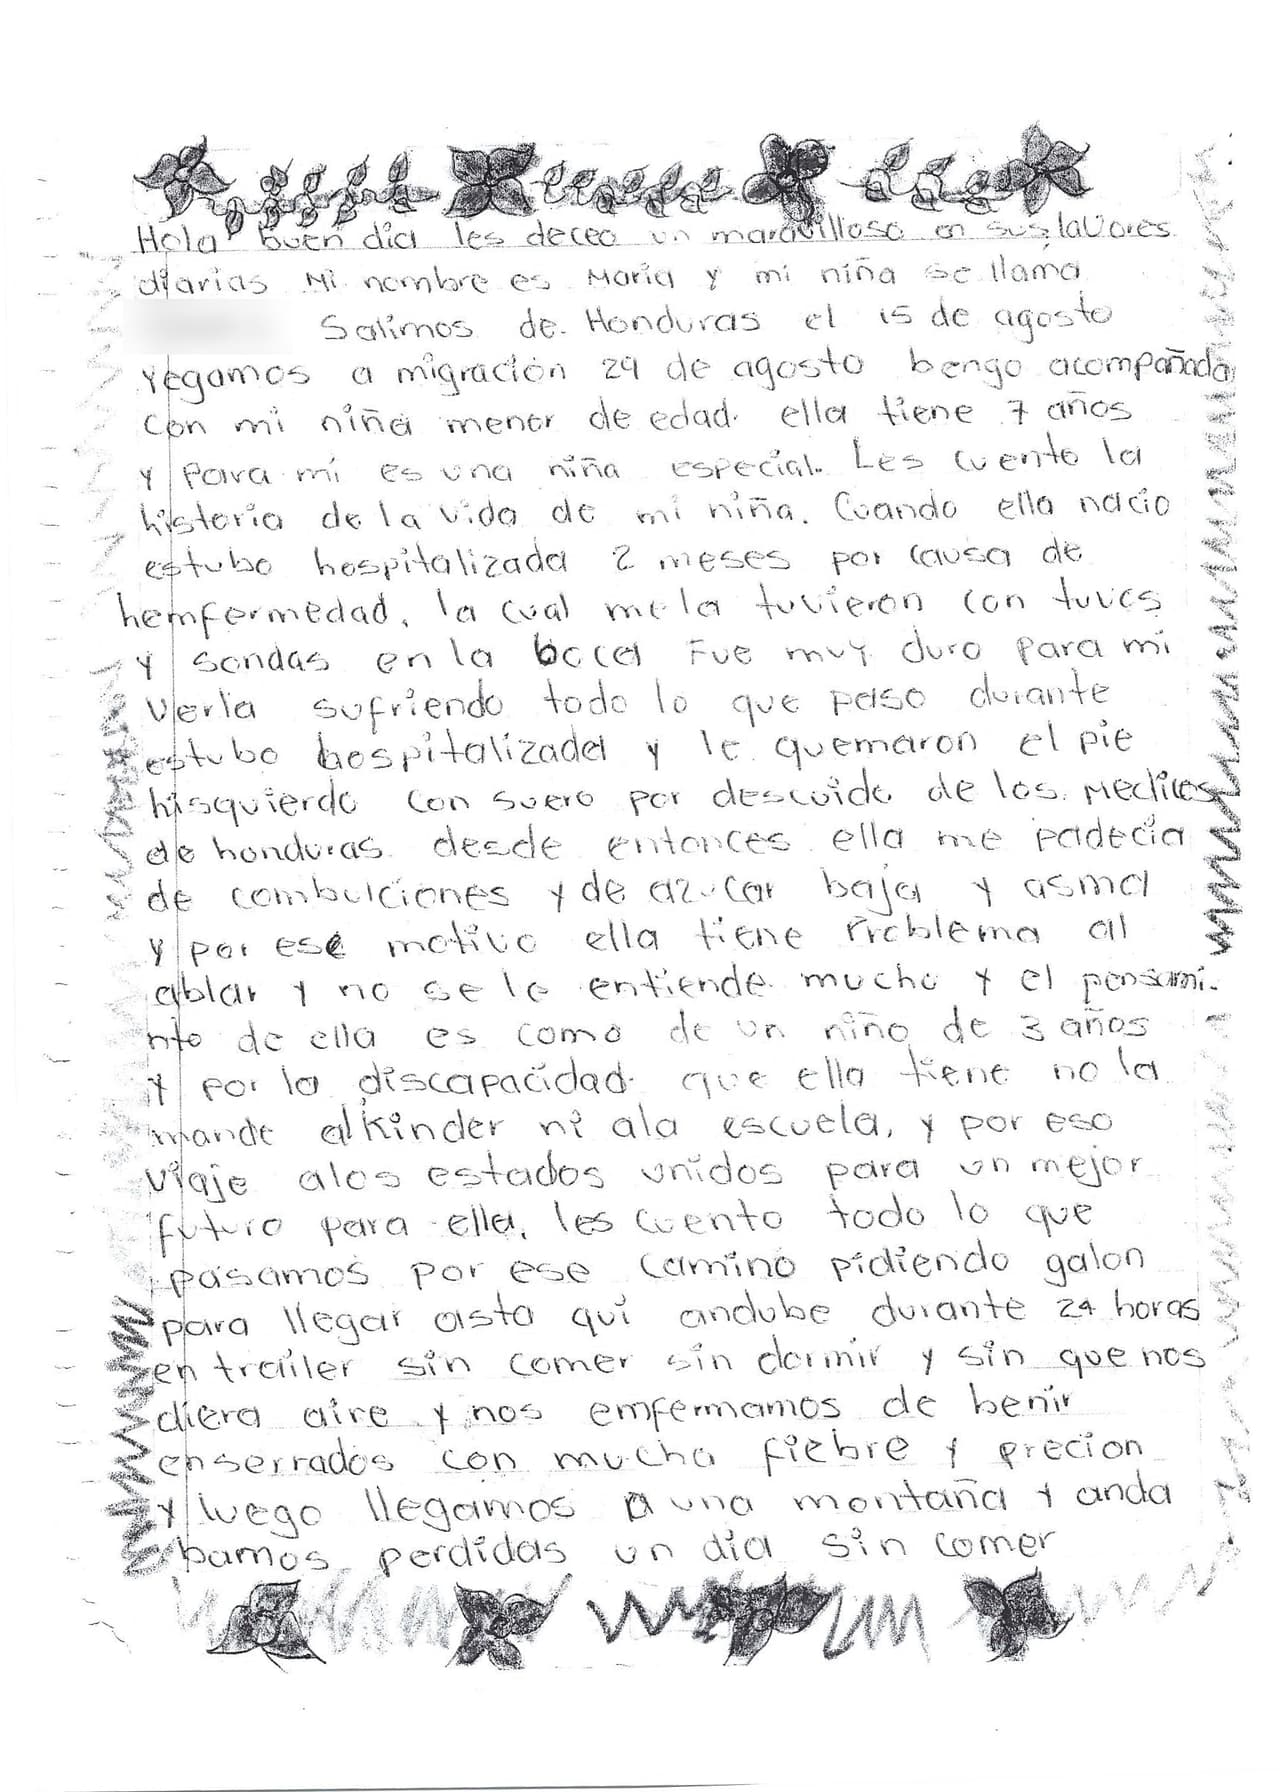 Hola buen dia les deceo un maravilloso en sus lavores
diarias Mi nombre es Maria y mi niña se llama
Salimos de. Honduras el 15 de agosto
Yegamos a migración 29 de agosto bengo acompañada
con mi niña menor de edad. ella tiene 7 años
y para mi es una niña especial. Les cuento la
historia de la vida de mi niña. Cuando ella nacio
estubo hospitalizada 2 meses por causa de
hemfermedad, la cual me la tuvieron con tuves
y sondas en la boca Fue muy duro para mi
Verla sufriendo todo lo que paso durante
estubo hospitalizada y le quemaron el pie
hisquierdo con suero por descuido de los. Medicos
de honduras. desde entonces ella me padecia
de combulciones y de azucar baja y asma
y por ese motivo ella tiene Problema al
ablar y no se le entiende mucho y el pensami-
nto de ella es como de un niño de 3 años
y por la discapacidad. que ella tiene no la
mande al kinder ni ala escuela, y por eso
Viaje alos estados unidos para un mejor
futuro para ella, les cuento todo lo que
pasamos por ese camino pidiendo galon
para llegar asta qui andube durante 24 horas
en trailer sin comer sin dormir y sin que nos
diera aire y nos emfermamos de benir
enserrados con mucha fiebre y precion
y luego llegamos a una montaña y anda
bamos perdidas un dia sin comer